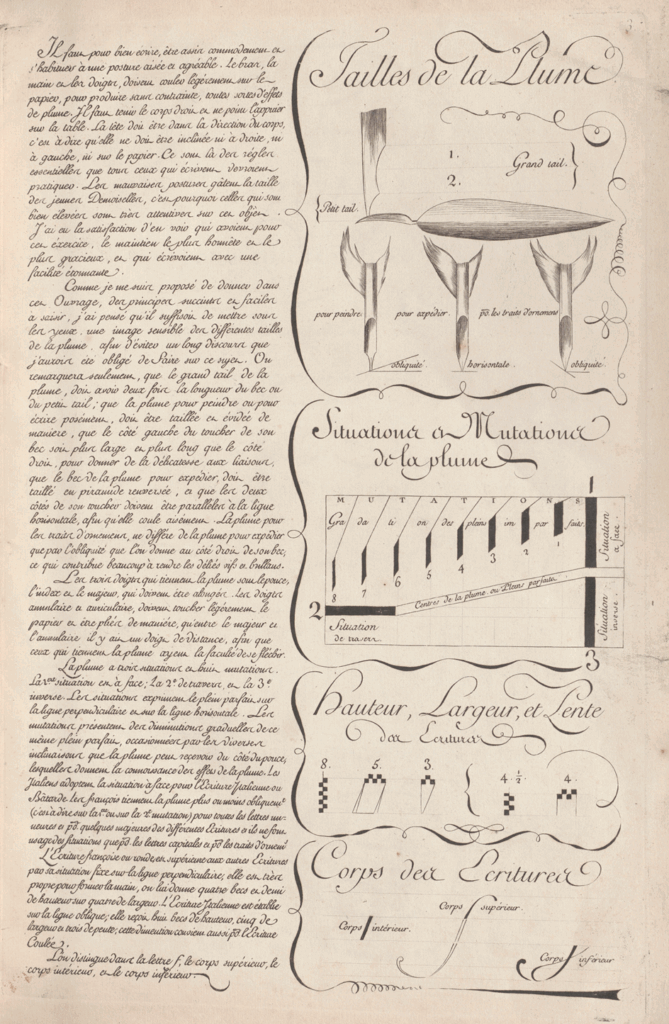 Il faut pour bien écrire, être assis commodément et
s'habituer à une posture aisée et agréable. Le bras, la
main et les doigts, doivent couler légèrement sur le
papier, pour produire sans contrainte, toutes sortes d'effets
de plume. Il faut tenir le corps droit et ne point l'appuier
sur la table. La tête doit être dans la direction du corps,
c'est à dire qu'elle ne doit être inclinée ni à droite, ni
à gauche, ni sur le papier. Ce sont là des régles
essentielles que tous ceux qui écrivent devroient
pratiquer. Les mauvaises postures gâtent la taille
des jeunes Demoiselles, c'est pourquoi celles qui sont
bien élevées sont très attentives sur cet objet.
J'ai eu la satisfaction d'en voir qui avoient pour
cet éxercice, le maintien le plus honnête et le
plus gracieux, et qui écrivoient avec une
facilité étonnante.
Comme je me suis proposé de donner dans
cet Ouvrage, des principes succints et faciles
à saisir, j'ai pensé qu'il suffisoit de mettre sous
les yeux, une image sensible des différentes tailles
de la plume, afin d'éviter un long discours que
j'aurois été obligé de faire sur ce sujet. On
remarquera seulement, que le grand tail de la
plume, doit avoir deux fois la longueur du bec ou
du petit tail; que la plume pour peindre ou pour
écrire posément, doit être taillée et évidée de
manière, que le côté gauche du toucher de son
bec soit plus large et plus long que le côté
droit, pour donner de la délicatesse aux liaisons,
que le bec de la plume pour expédier, doit être
taillé en piramide renversée, et que les deux
côtés de son toucher doivent être parallèles à la ligne
horisontale, afin qu'elle coule aisément. La plume pour
les traits d'ornement, ne diffère de la plume pour expédier
que par l'obliquité que l'on donne au côté droit de son bec,
ce qui contribue beaucoup à rendre les déliés vifs et brillans.
Les trois doigts qui tiennent la plume sont le pouce,
l'index et le majeur, qui doivent être allongés. les doigts
annulaire et auriculaire, doivent toucher légèrement le
papier et être pliés de manière, qu'entre le majeur et
l'annulaire il y ait un doigt de distance, afin que
ceux qui tiennent la plume ayent la faculté de se fléchir.
La plume a trois situations et huit mutations.
La 1re situation est à face; La 2e de travers, et la 3e
inverse. Les situations expriment le plein parfait sur
la ligne perpendiculaire et sur la ligne horisontale. Les
mutations présentent des diminutions graduelles de ce
même plein parfait, occasionnées par les diverses
inclinaisons que la plume peut recevoir du côté du pouce,
lesquelles donnent la connoissance des effets de la plume. Les
Italiens adoptent la situation à face pour l'Ecriture Italienne ou
Bâtarde. les françois tiennent la plume plus ou moins obliquemt
(c'est à dire sur la 1re ou sur la 2e mutation) pour toutes les lettres mi-
neures et pr. quelques majeures des différentes Ecritures et ils ne font
usage des situations que pr. les lettres capitales et pr. les traits d'ornemt.
L'Ecriture françoise ou ronde, est supérieure aux autres Ecritures
par sa situation fixe sur la ligne perpendiculaire; elle est très
propre pour former la main, on lui donne quatre becs et demi
de hauteur sur quatre de largeur. L'Ecriture Italienne est établie
sur la ligne oblique; elle reçoit huit becs de hauteur, cinq de
largeur et trois de pente; cette dimention convient aussi pr. l'Ecriture
Coulée.
L'on distingue dans la lettre f, le corps supérieur, le
corps intérieur, et le corps inférieur.
Tailles de la Plume
1.
2.
Grand tail.
Petit tail.
pour peindre
pour expédier
pr. les traits d'ornemens
obliquité
horisontale.
obliquité
Situations et Mutations
de la plume
MUTATIONS
Gradation des pleins imparfaits.
8 7 6 5 4 3 2 1
1
Situation à face.
Centres de la plume ou Pleins parfaits.
2
Situation
de travers
Situation inverse.
3
Hauteur, Largeur, et Pente
des Ecritures
8. 5. 3. 4 1/2 4.
Corps des Ecritures
Corps supérieur.
Corps intérieur.
Corps inférieur